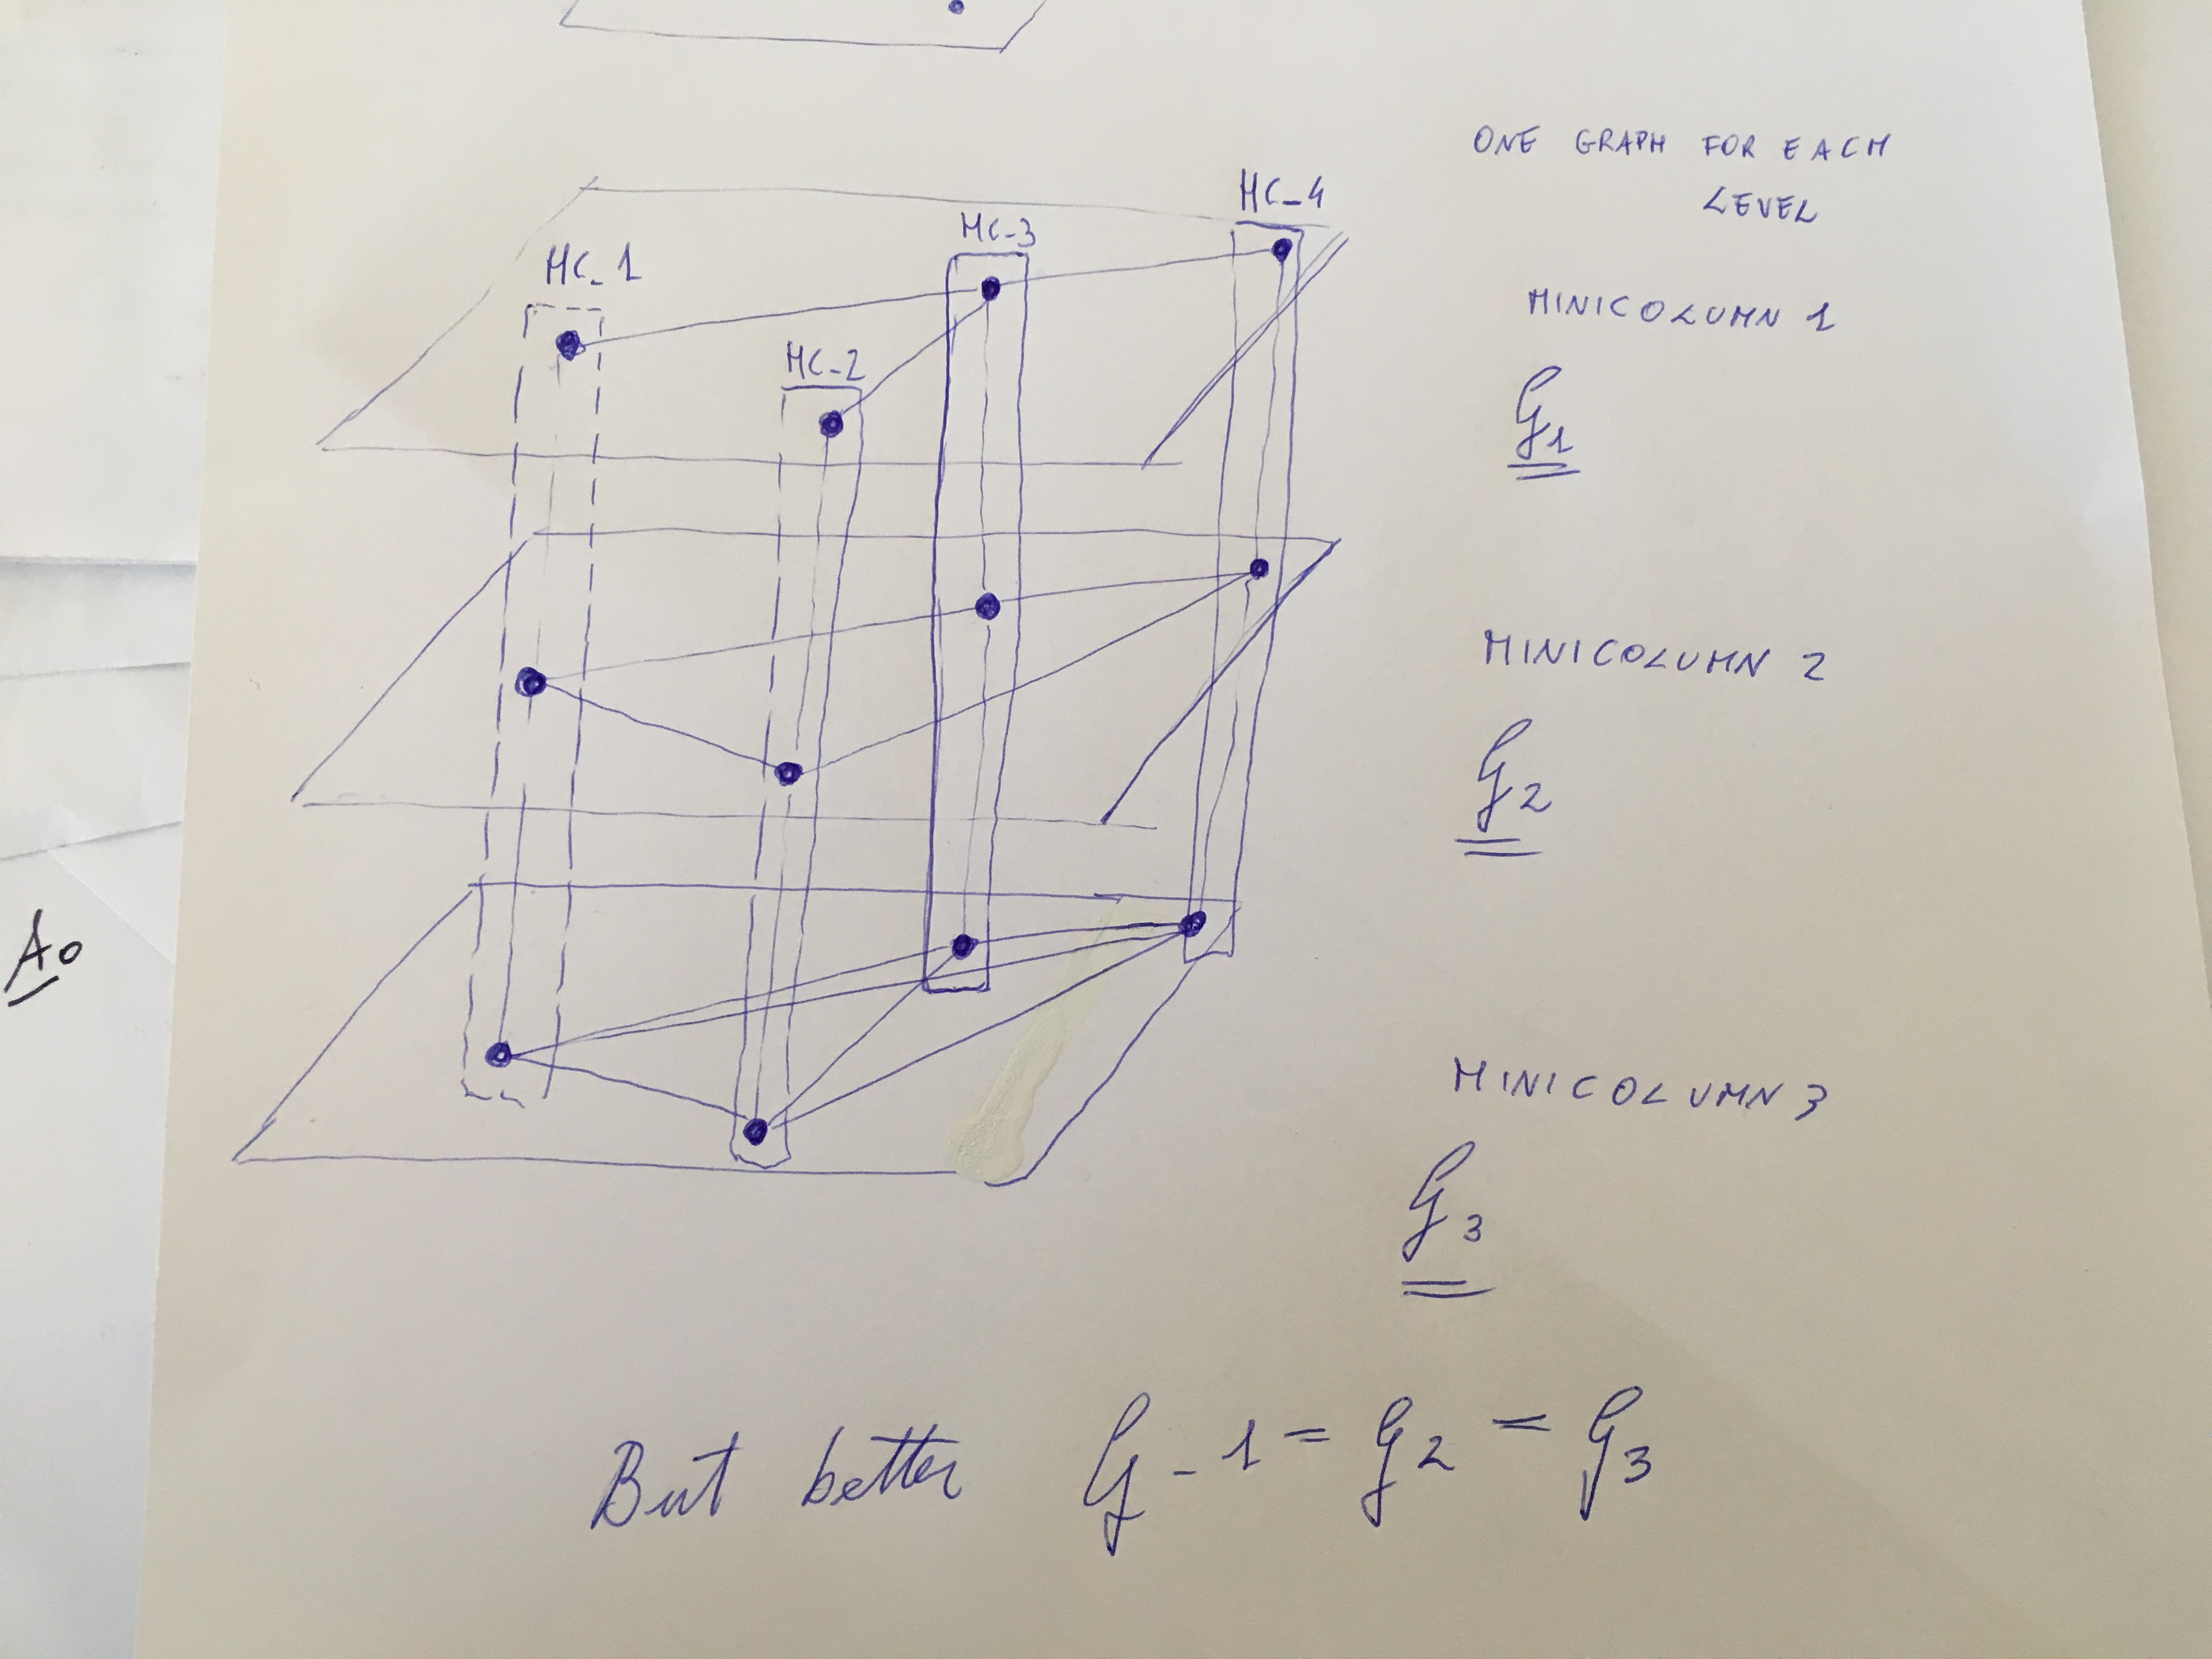 A0
ONE GRAPH FOR EACH
LEVEL
HC_1
HC_2
HC_3
HC_4
MINICOLUMN 1
G1
MINICOLUMN 2
G2
MINICOLUMN 3
G3
But better G-1 = G2 = G3